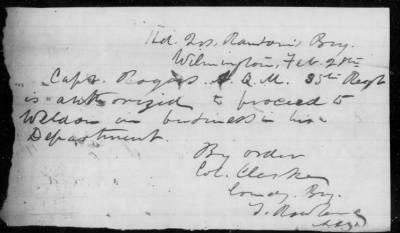 Hd. Qrs. Ransom's Brig.
Wilmington, Feb. 28th
Capt. Rogers A. Q. M. 35th Regt
is authorized to proceed to
Weldon on business in his
Department.
By order
Col. Clarke
Comdg Brig.